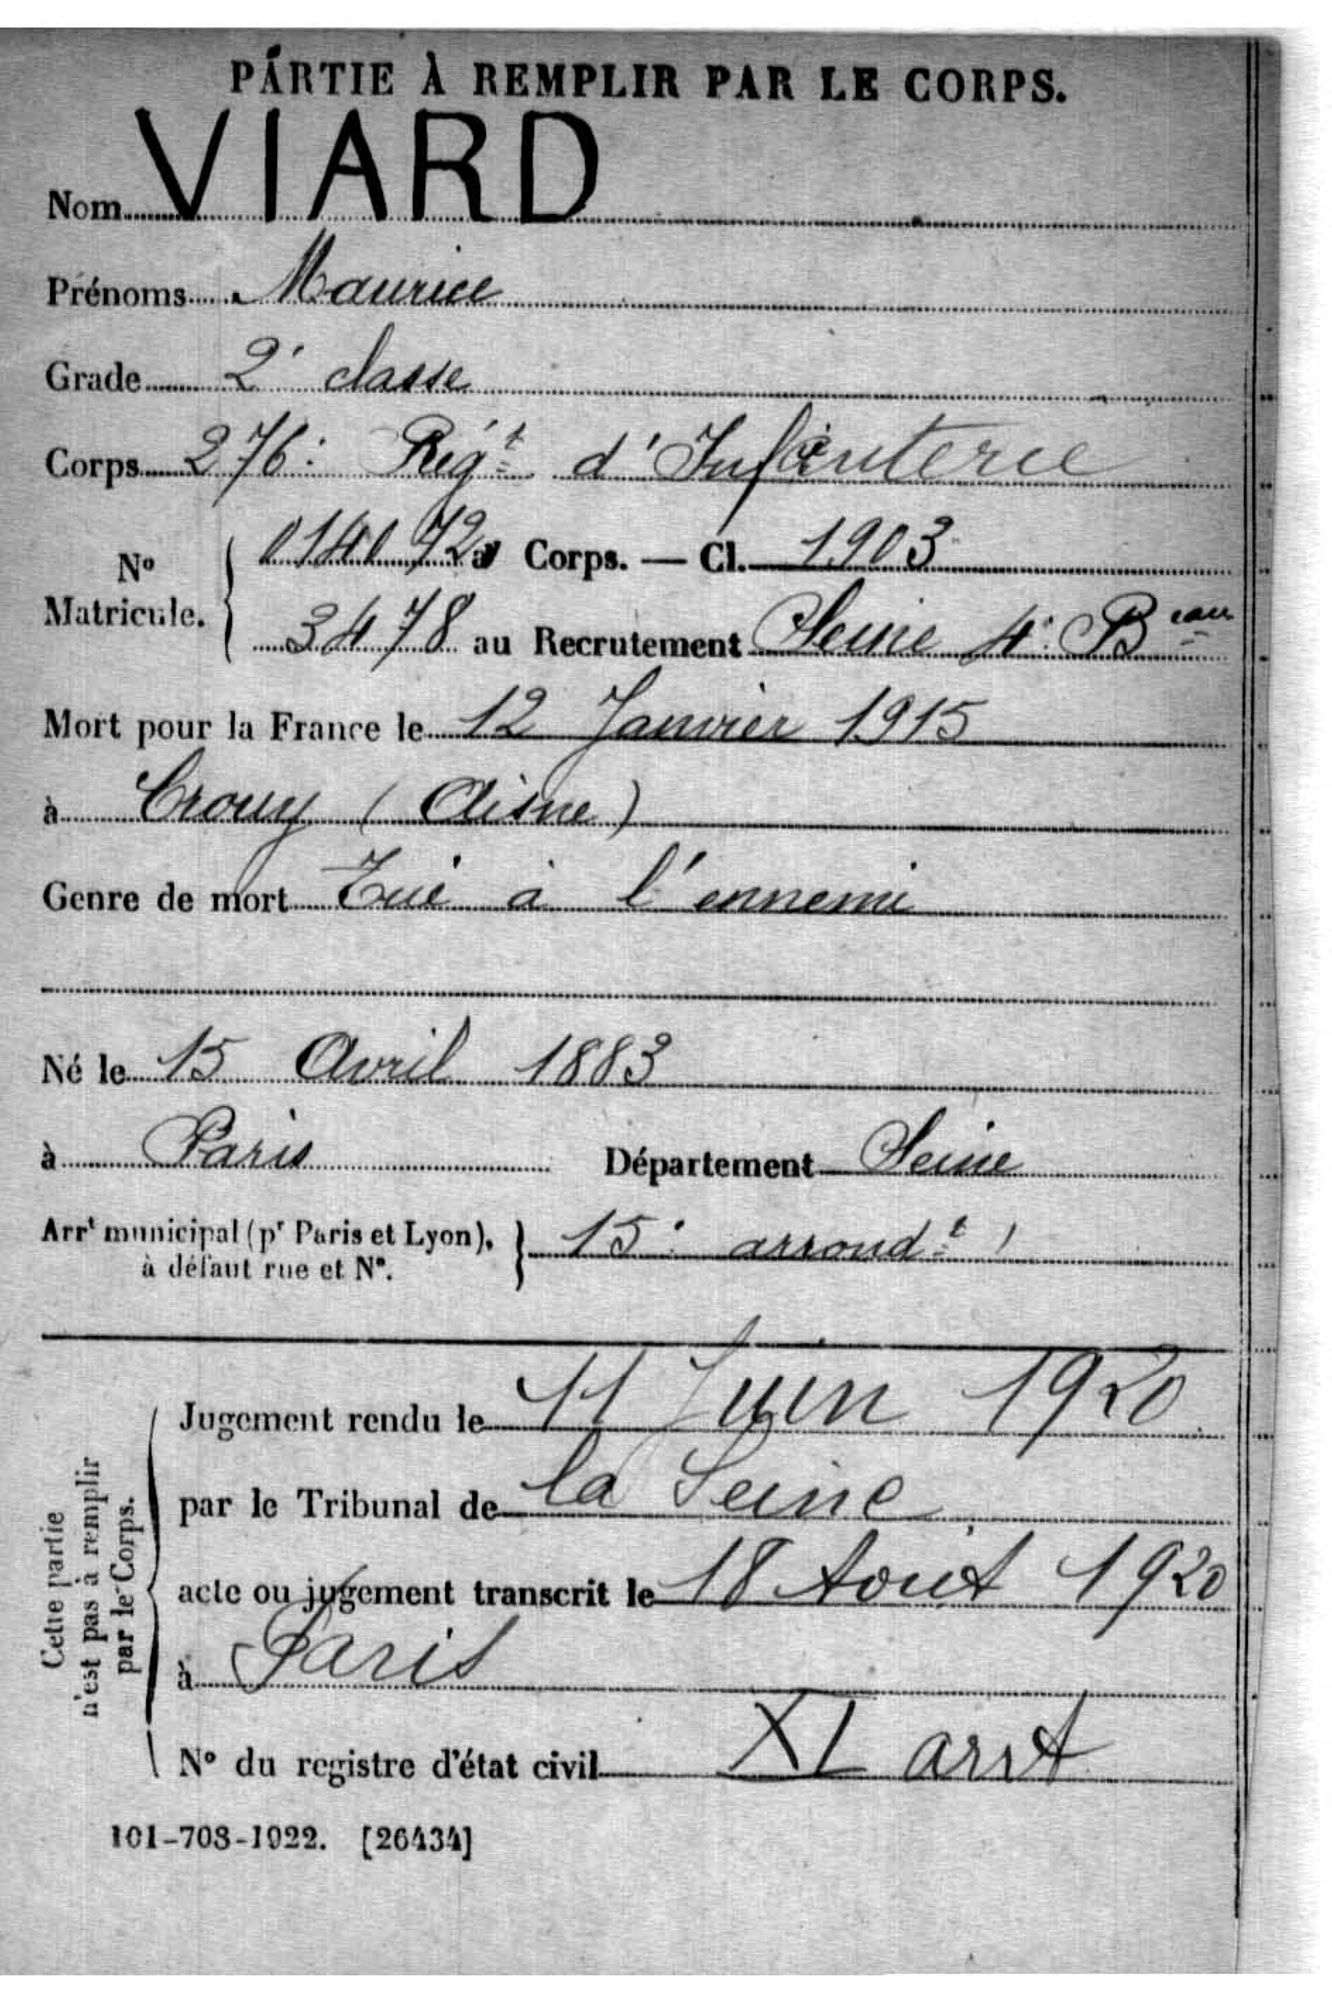 PARTIE À REMPLIR PAR LE CORPS.
Nom VIARD
Prénoms Maurice
Grade 2e classe
Corps 276e Régt d'Infanterie
No Matricule. { 014072 au Corps. — Cl. 1903
3478 au Recrutement Seine 4e Beau
Mort pour la France le 12 Janvier 1915
à Crouy (Aisne)
Genre de mort Tué à l'ennemi
Né le 15 Avril 1883
à Paris Département Seine
Arrt municipal (pr Paris et Lyon), à défaut rue et No. } 15e arrondt
Cette partie n'est pas à remplir par le Corps.
Jugement rendu le 11 Juin 1920
par le Tribunal de la Seine
acte ou jugement transcrit le 18 Août 1920
à Paris
No du registre d'état civil XI arrt
101-708-1922. [26434]